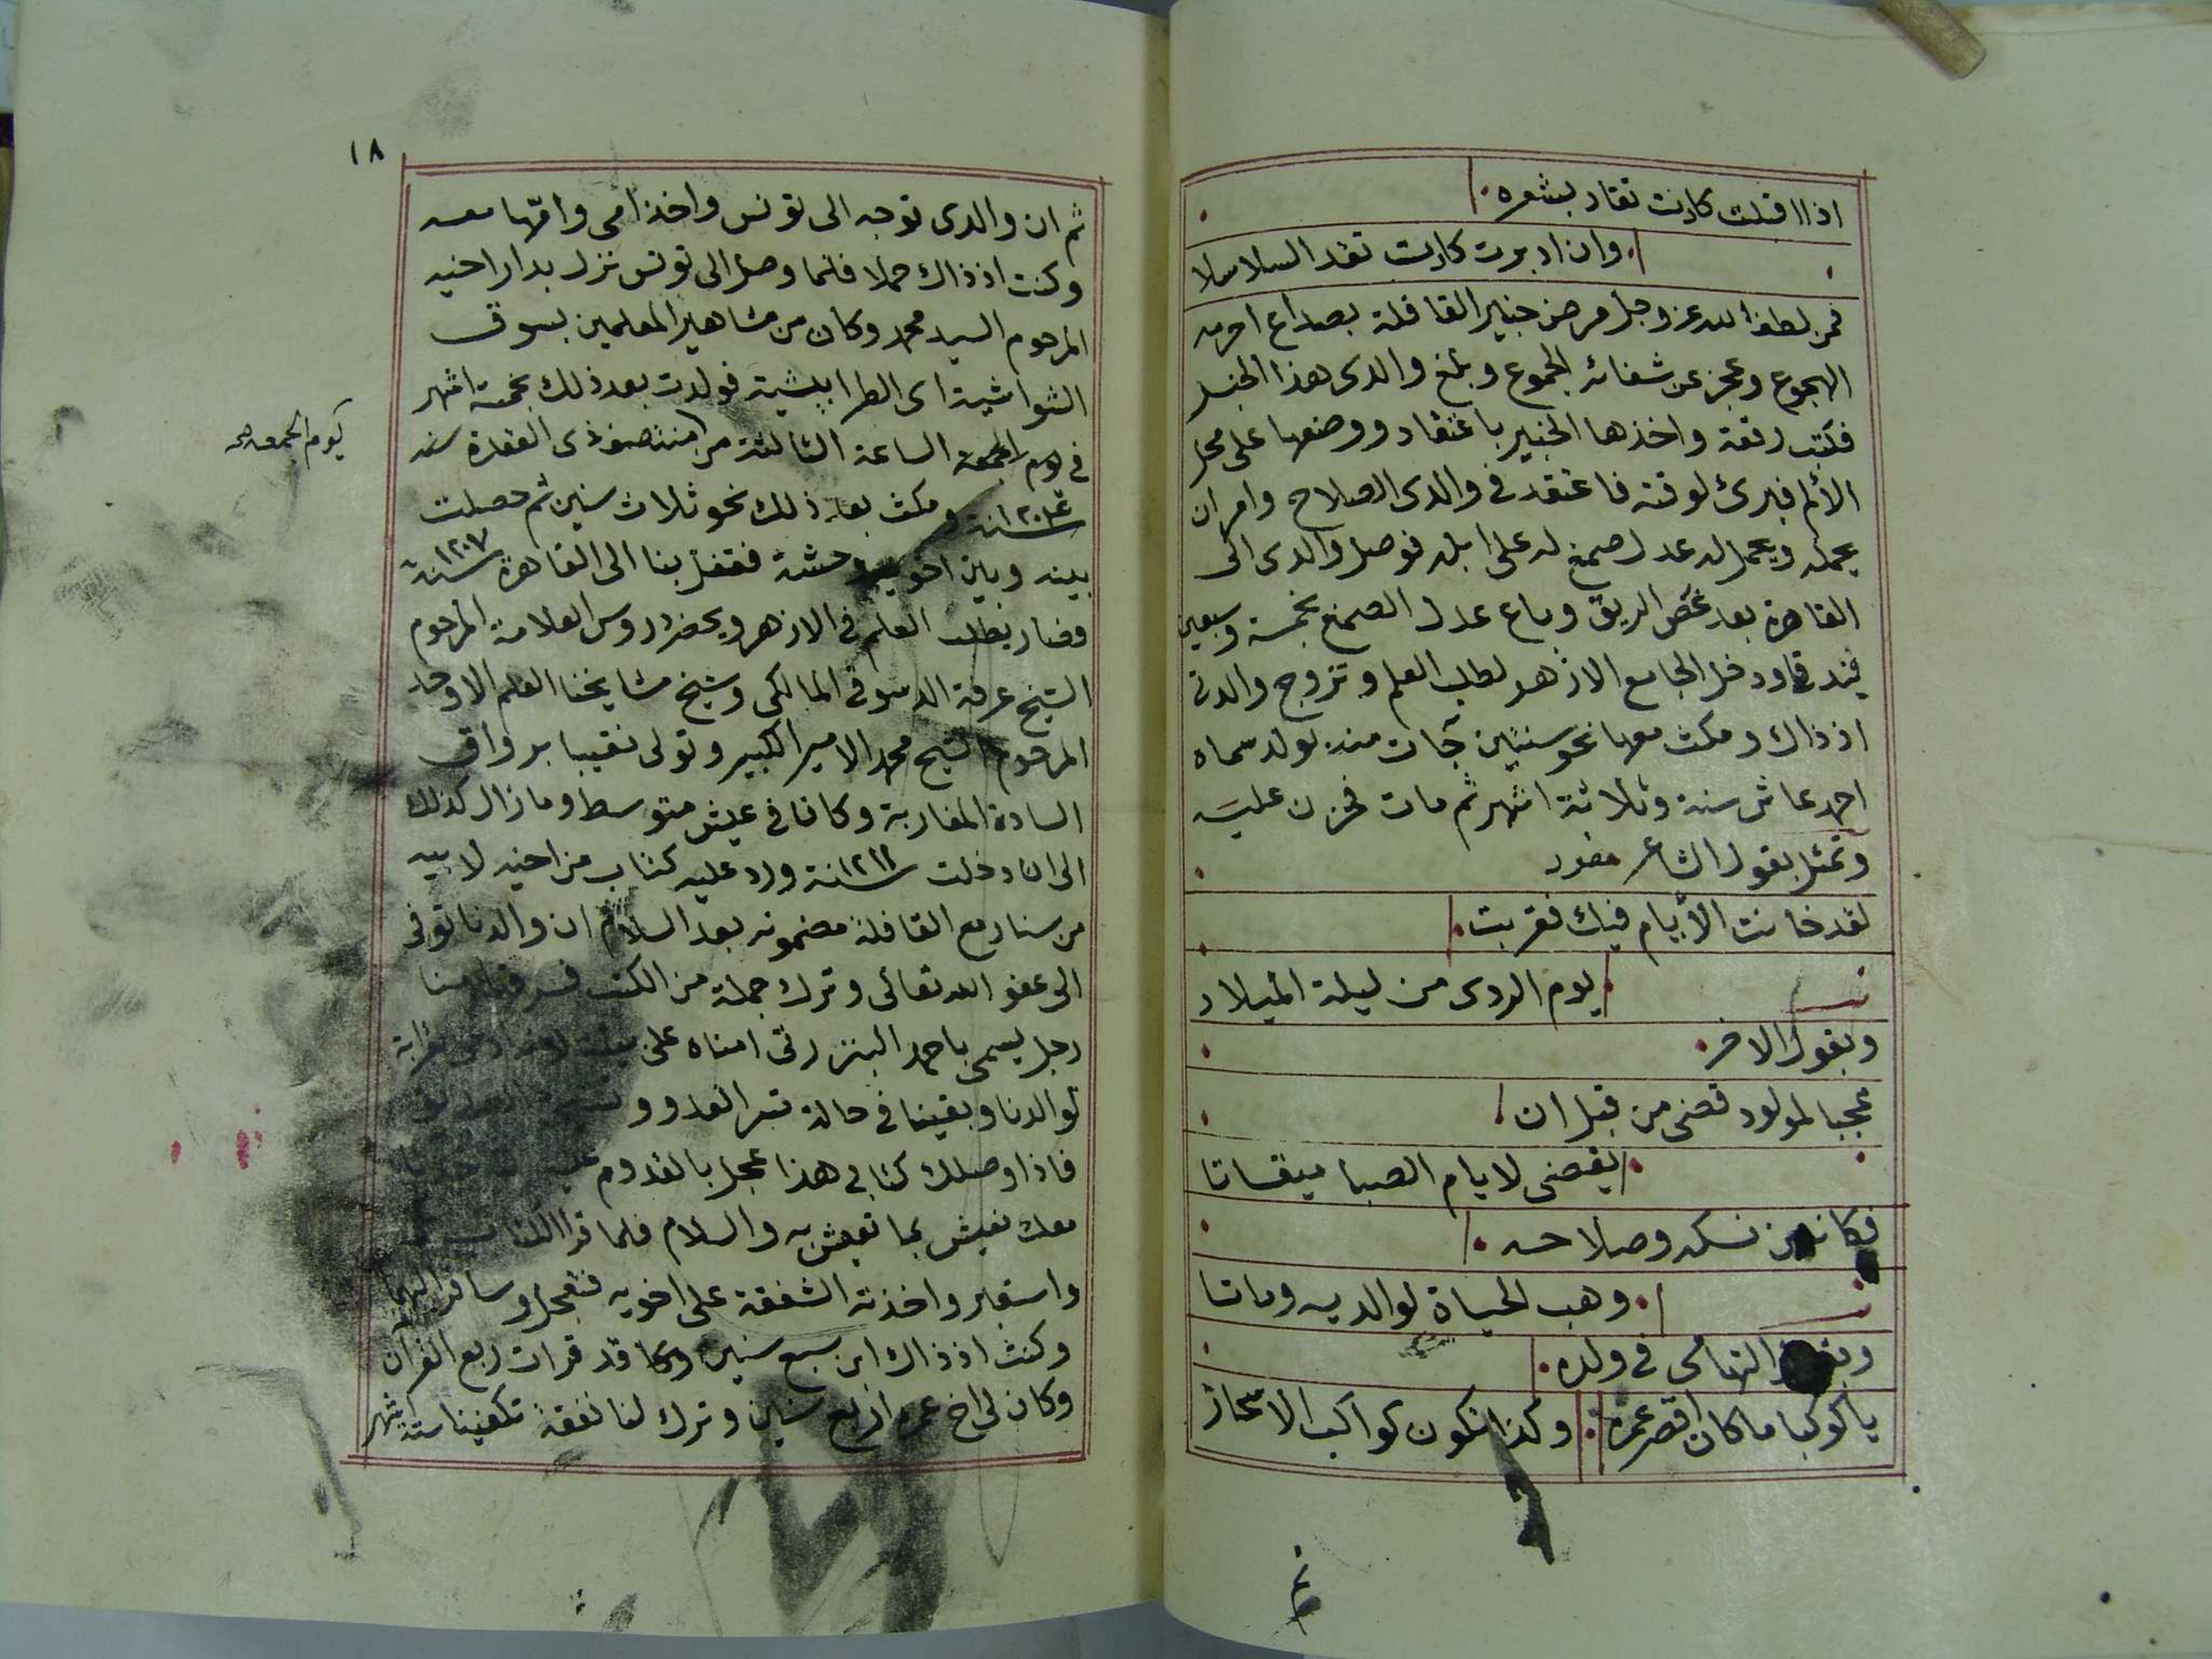 اذا اقبلت كانت تقاد بشعره
وان ادبرت كانت تقد السلاسلا
فمن لطف الله عز وجل مرض خبير القافلة بصداع احرمه
الهجوع وعجز عن شفائه الجموع وبلغ والدى هذا الخبر
فكتب رقعة واخذها الخبير باعتقاد ووضعها على محل
الألم فبرئ لوقته فاعتقد في والدى الصلاح وامر ان
يحمله ويحمل له عدل صمغ له على ابله فوصل والدى الى
القاهرة بعد غص الريق وباع عدل الصمغ بخمسة وسبعين
فندقيا ودخل الجامع الازهر لطلب العلم وتزوج والدتى
اذ ذاك ومكث معها نحو سنتين جات منه بولد سماه
احمد عاش سنة وثلاثة اشهر ثم مات فحزن عليه
وتمثل بقول الشاعر
لقد خانت الأيام فيك فقربت
يوم الردى من ليلة الميلاد
وبقول الاخر
عجبا لمولود قضى من قبل ان
يقضى لايام الصبا ميقاتا
فكانه من نسكه وصلاحه
وهب الحياة لوالديه وماتا
التهامى في ولده
يا كوكبا ما كان اقصر عمره وكذا تكون كواكب الاسحار
ثم
١٨
ثم ان والدى توجه الى تونس واخذ امى وامّها معه
وكنت اذ ذاك حملا فلما وصل الى تونس نزل بدار اخيه
المرحوم السيد محمد وكان من مشاهير المعلمين بسوق
الشواشية اى الطرابيشية فولدت بعد ذلك بخمسة اشهر
في يوم الجمعة الساعة الثالثة من منتصف ذى القعدة سنه
يوم الجمعه صح
١٢٠٤ سنة ومكث بعد ذلك نحو ثلاث سنين ثم حصلت
بينه وبين اخويه وحشة فقفل بنا الى القاهرة سنة ١٢٠٧
فصار يطلب العلم في الازهر ويحضر دروس العلامة المرحوم
الشيخ عرفة الدسوقى المالكي وشيخ مشايخنا العلم الاوحد
المرحوم الشيخ محمد الامير الكبير وتولى نقيبا برواق
السادة المغاربة وكانا في عيش متوسط وما زال كذلك
الى ان دخلت سنة ١٢١١ ورد عليه كتاب من اخيه لابيه
من سنار مع القافلة مضمونه بعد السلام ان والدنا توفى
الى عفو الله تعالى وترك جملة من الكتب فسرقها منا
رجل يسمى باحمد البنزرتى امناه على
لوالدنا وبقينا في حالة تسر العدو و
فاذا وصلك كتابى هذا عجل بالقدوم
معك نعيش بما تعيش به والسلام فلما قرا الكتاب
واستعبر واخذته الشفقة على اخويه فتعجل وسافر اليهما
وكنت اذ ذاك ابن سبع سنين وكا قد قرات ربع القرآن
وكان لى اخ عمره اربع سنين وترك لنا نفقة تكفينا ستة اشهر